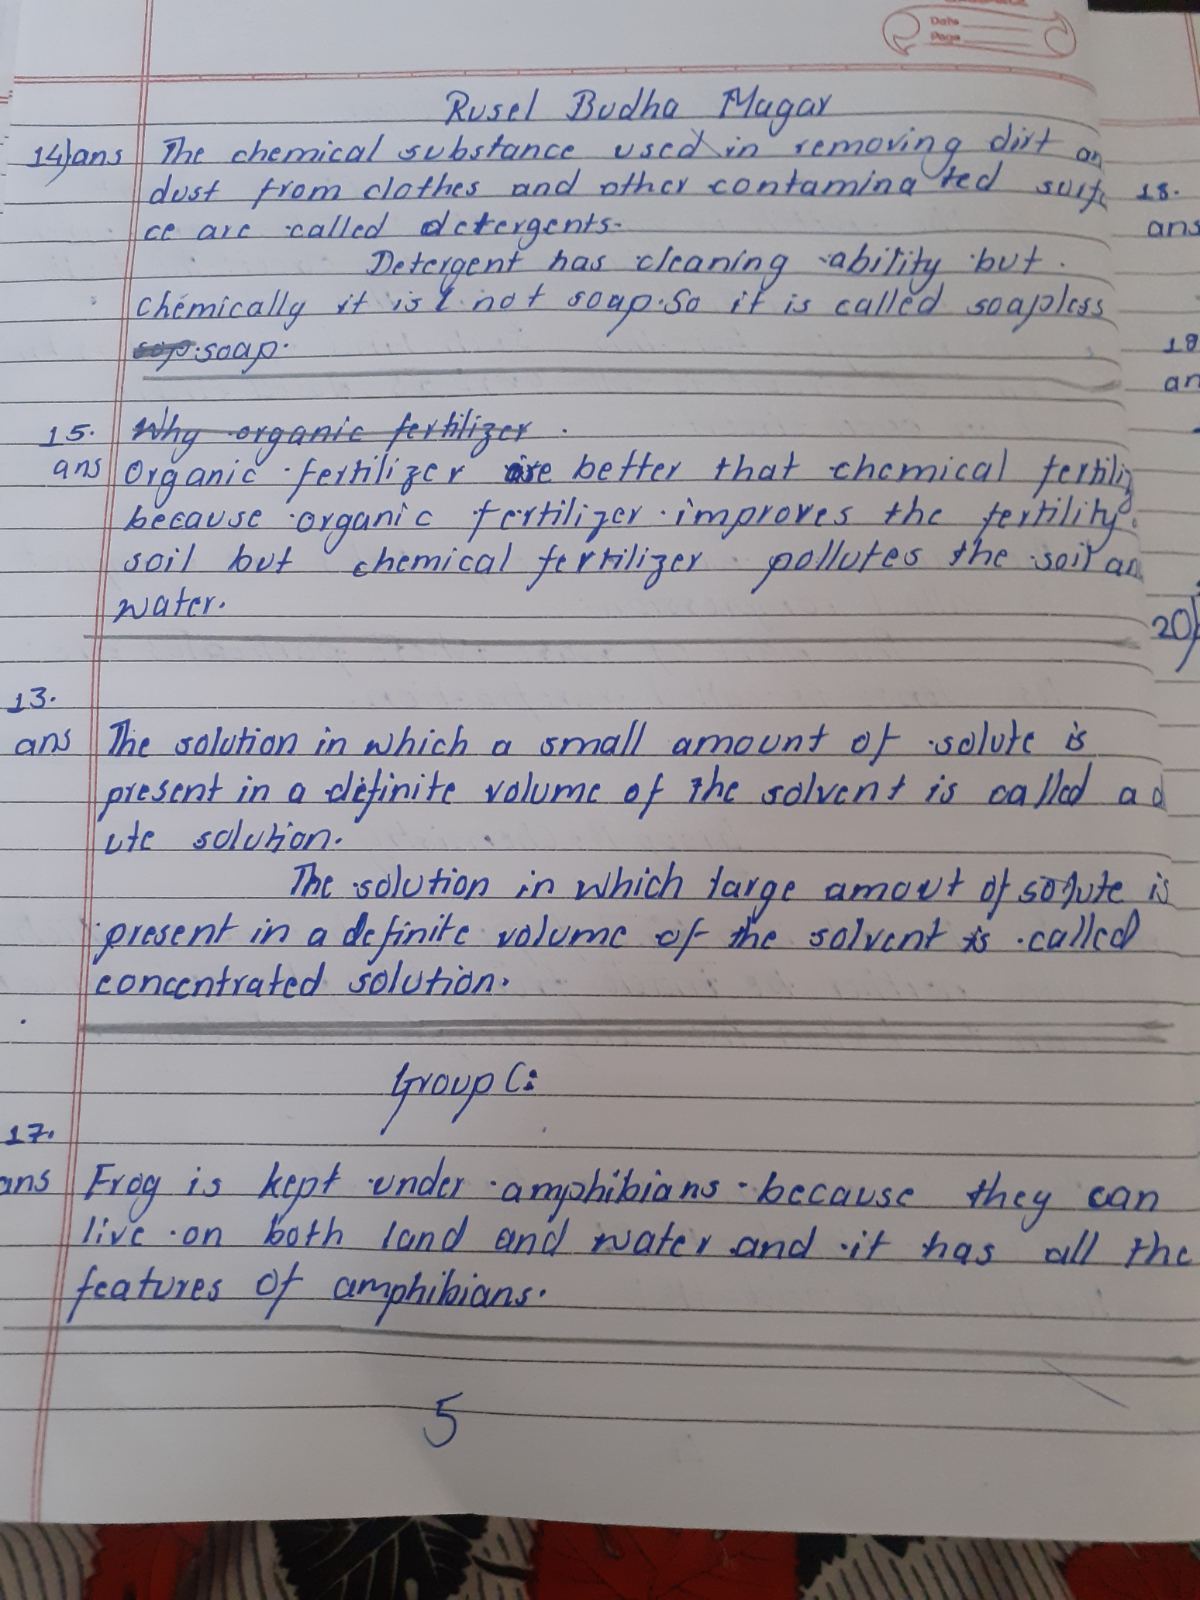 Date
Page
Rusel Budha Magar
14) ans The chemical substance used in removing dirt an
dust from clothes and other contamina ted surf 18.
ce are called detergents. ans
Detergent has cleaning ability but
chemically it is not soap. So it is called soapless
soap. 19
an
15. Why organic fertilizer
ans Organic fertilizer are better that chemical fertiliz
because organic fertilizer improves the fertility
soil but chemical fertilizer pollutes the soil an
water.
20)
13.
ans The solution in which a small amount of solute is
present in a definite volume of the solvent is called a d
ute solution.
The solution in which large amout of solute is
present in a definite volume of the solvent is called
concentrated solution.
Group C:
17.
ans Frog is kept under amphibians because they can
live on both land and water and it has all the
features of amphibians.
5